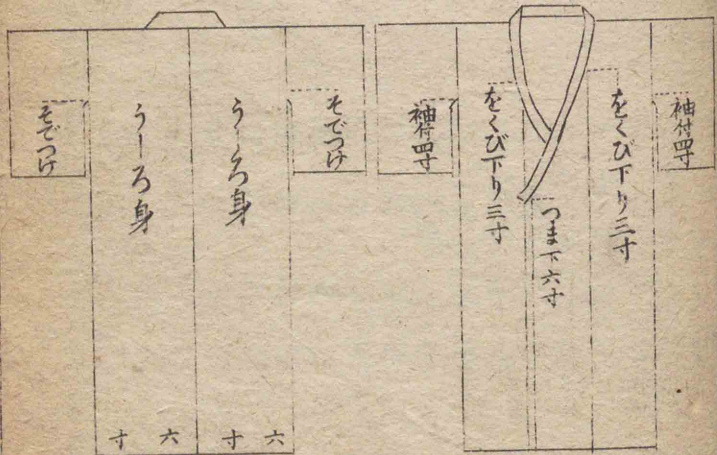 袖付四寸
をくび下り三寸
つま下六寸
をくび下り三寸
袖付四寸
そでつけ
うしろ身
六寸
うしろ身
六寸
そでつけ